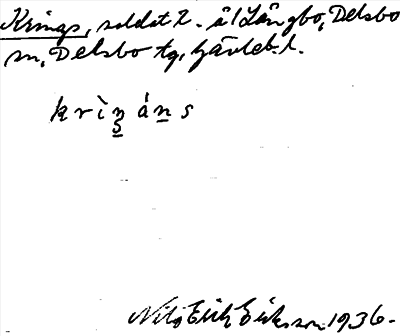 Krings, soldat l. å l Långbo, Delsbo
sn, Delsbo tg, Gävleb. l.
krìŋáns
Nils Erik Eriksson 1936.